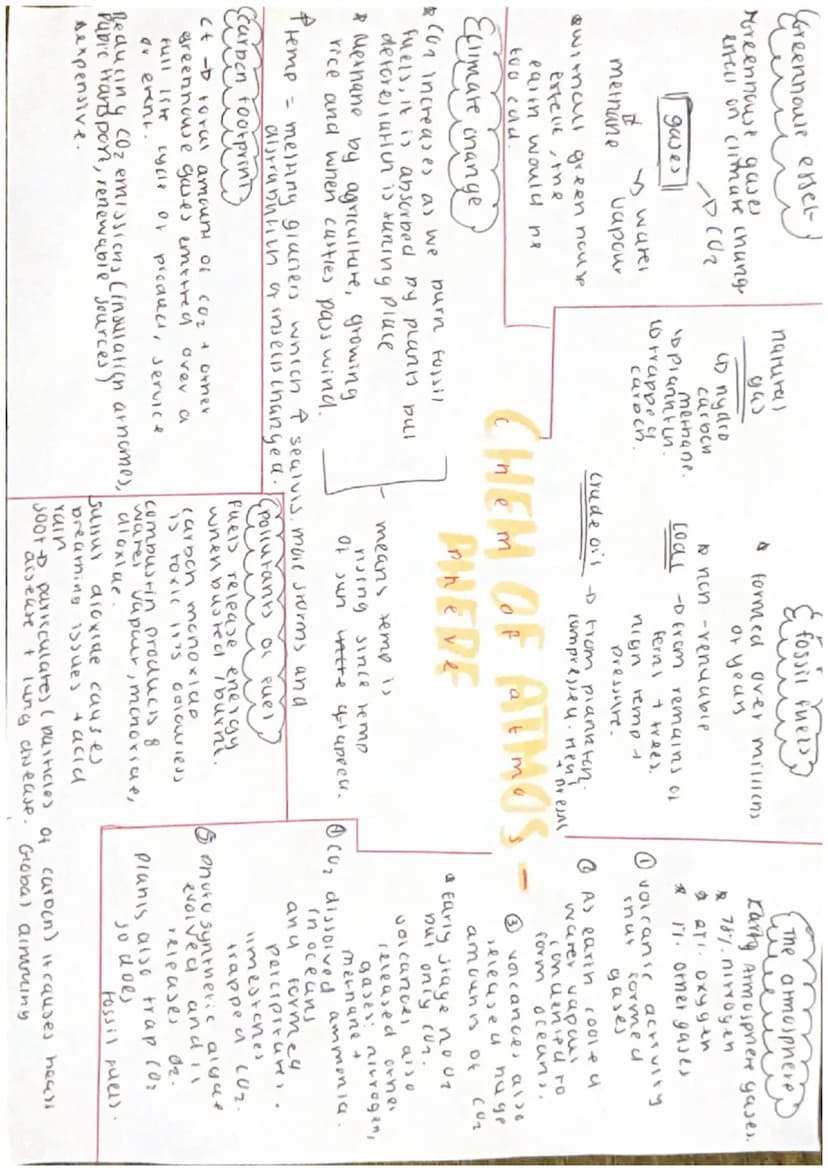 Greenhouse effect
Greenhouse gases
effect on climate change
gases
CO2
methane
water
vapour
* without greenhouse
effect, the
earth would be
too cold.
Climate change
* CO2 increases as we burn fossil
fuels, it is absorbed by plants but
deforestation is taking place
* Methane by agriculture, growing
rice and when cattles pass wind.
- means temp is
rising since temp
of sun trapped.
↑ temp = melting glaciers which ↑ sealvls. more storms and
distribution of insects changed.
Carbon footprint
ct → total amount of CO2 + other
greenhouse gases emitted over a
full life cycle of product, service
or event.
Reducing CO2 emissions (insulation at homes,
public transport, renewable sources)
* expensive.
natural
gas
↳ hydro
carbon
methane.
↳ plankton.
↳ trapped
carbon.
fossil fuels
* formed over millions
of years
* non-renewable
Coal → from remains of
ferns + trees.
high temp +
pressure.
crude oil → from plankton.
compressed. heat
+ press
CHEM OF ATMOS-
PHERE
chem of atmo
phere
Pollutants of fuel
fuels release energy
when busted / burnt.
carbon monoxide
is toxic its colourless
combustion produces 8
water vapour, monoxide,
dioxide.
Sulfur dioxide causes
breathing issues + acid
rain
soot → particulates (particles of carbon) it causes heart
disease + lung disease. Global dimming
The atmosphere
Early Atmosphere gases.
* 78% nitrogen
* 21% oxygen
* 1% other gases
① volcanic activity
that formed
gases
② As earth cooled
water vapour
condensed to
form oceans.
③ volcanoes also
released huge
amounts of CO2
* Early stage no O2
but only CO2.
volcanoes also
released other
gases: nitrogen,
methane +
ammonia.
④ CO2 dissolved
in oceans
and formed
percipitates.
limestones
trapped CO2.
⑤ photosynthetic algae
evolved and it
releases O2.
plants also trap CO2
so does
fossil fuels.